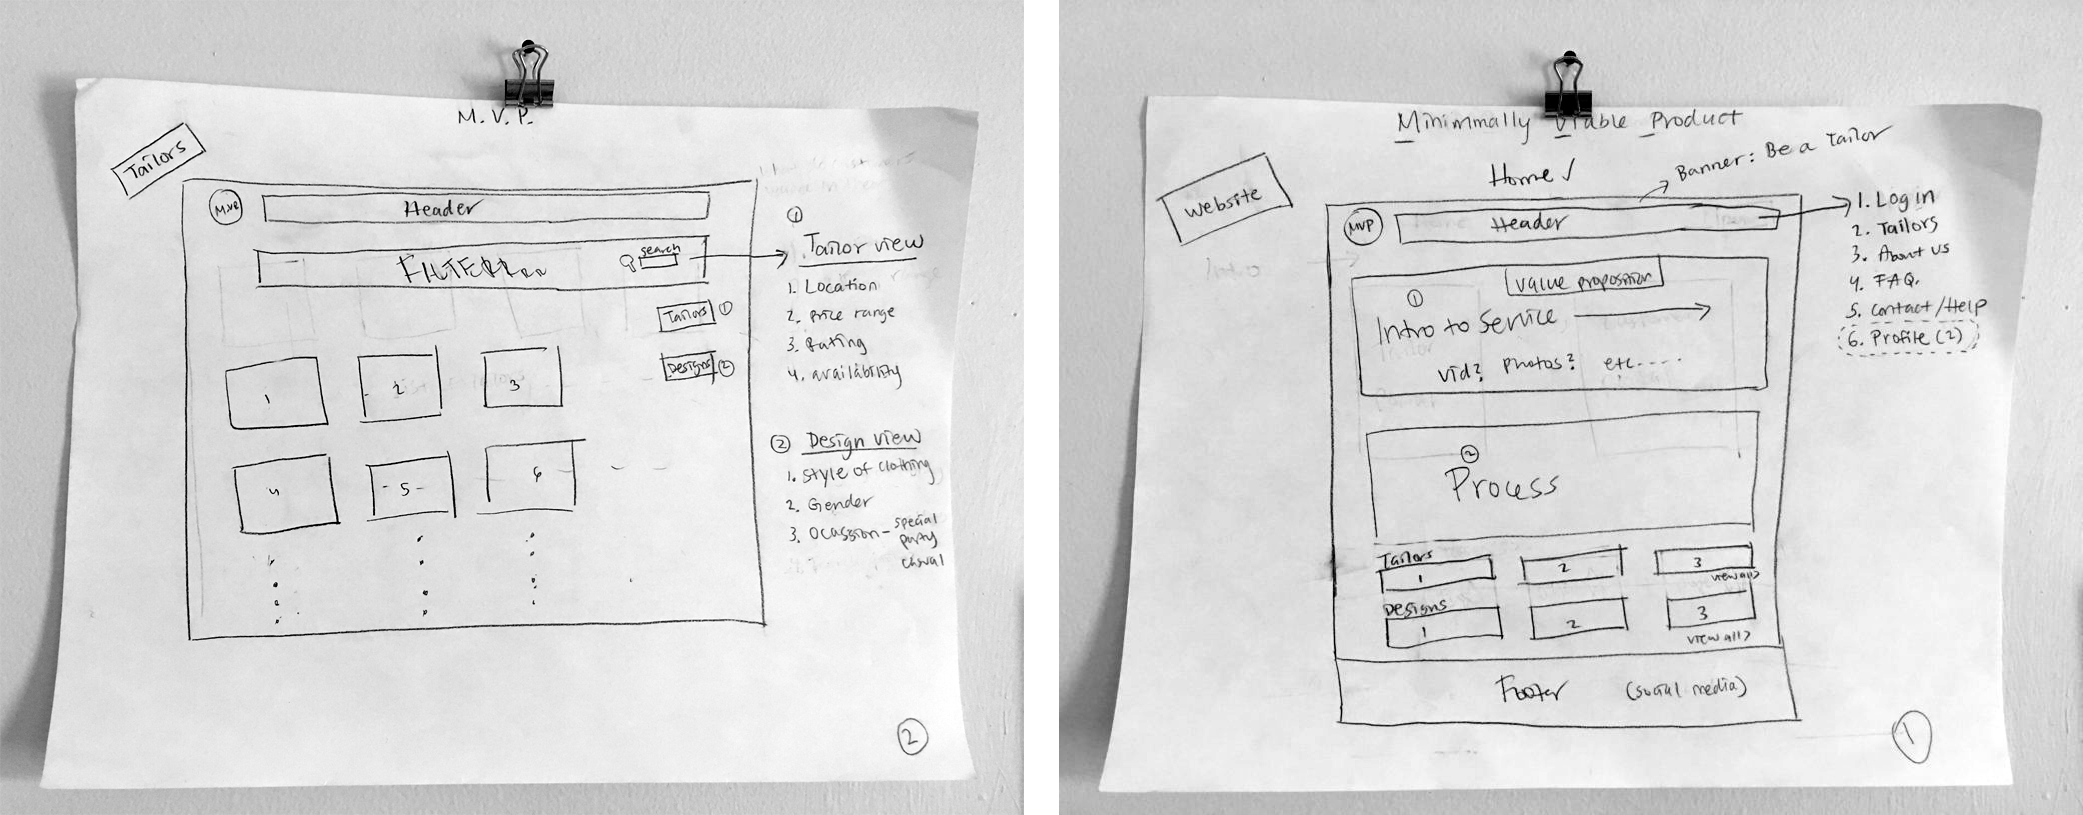 M.V.P.
Tailors
M.V.P
Header
FILTER
search
Tailors ①
Designs ②
1
2
3
4
- 5 -
6
①
Tailor view
1. Location
2. Price range
3. Rating
4. availability
② Design view
1. style of clothing
2. Gender
3. Ocassion - special
party
casual
2
Minimmally Viable Product
Home ✓
Banner: Be a Tailor
website
MVP
Header
1. Log in
2. Tailors
3. About us
4. FAQ.
5. Contact/Help
6. Profile (2)
value proposition
①
Intro to Service
vid? photos? etc.....
②
Process
Tailors
1
2
3
view all>
Designs
1
2
3
view all>
Footer (social media)
1
Intro